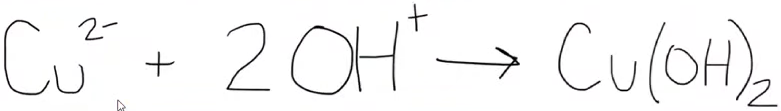 Cu²⁻ + 2OH⁺ → Cu(OH)₂